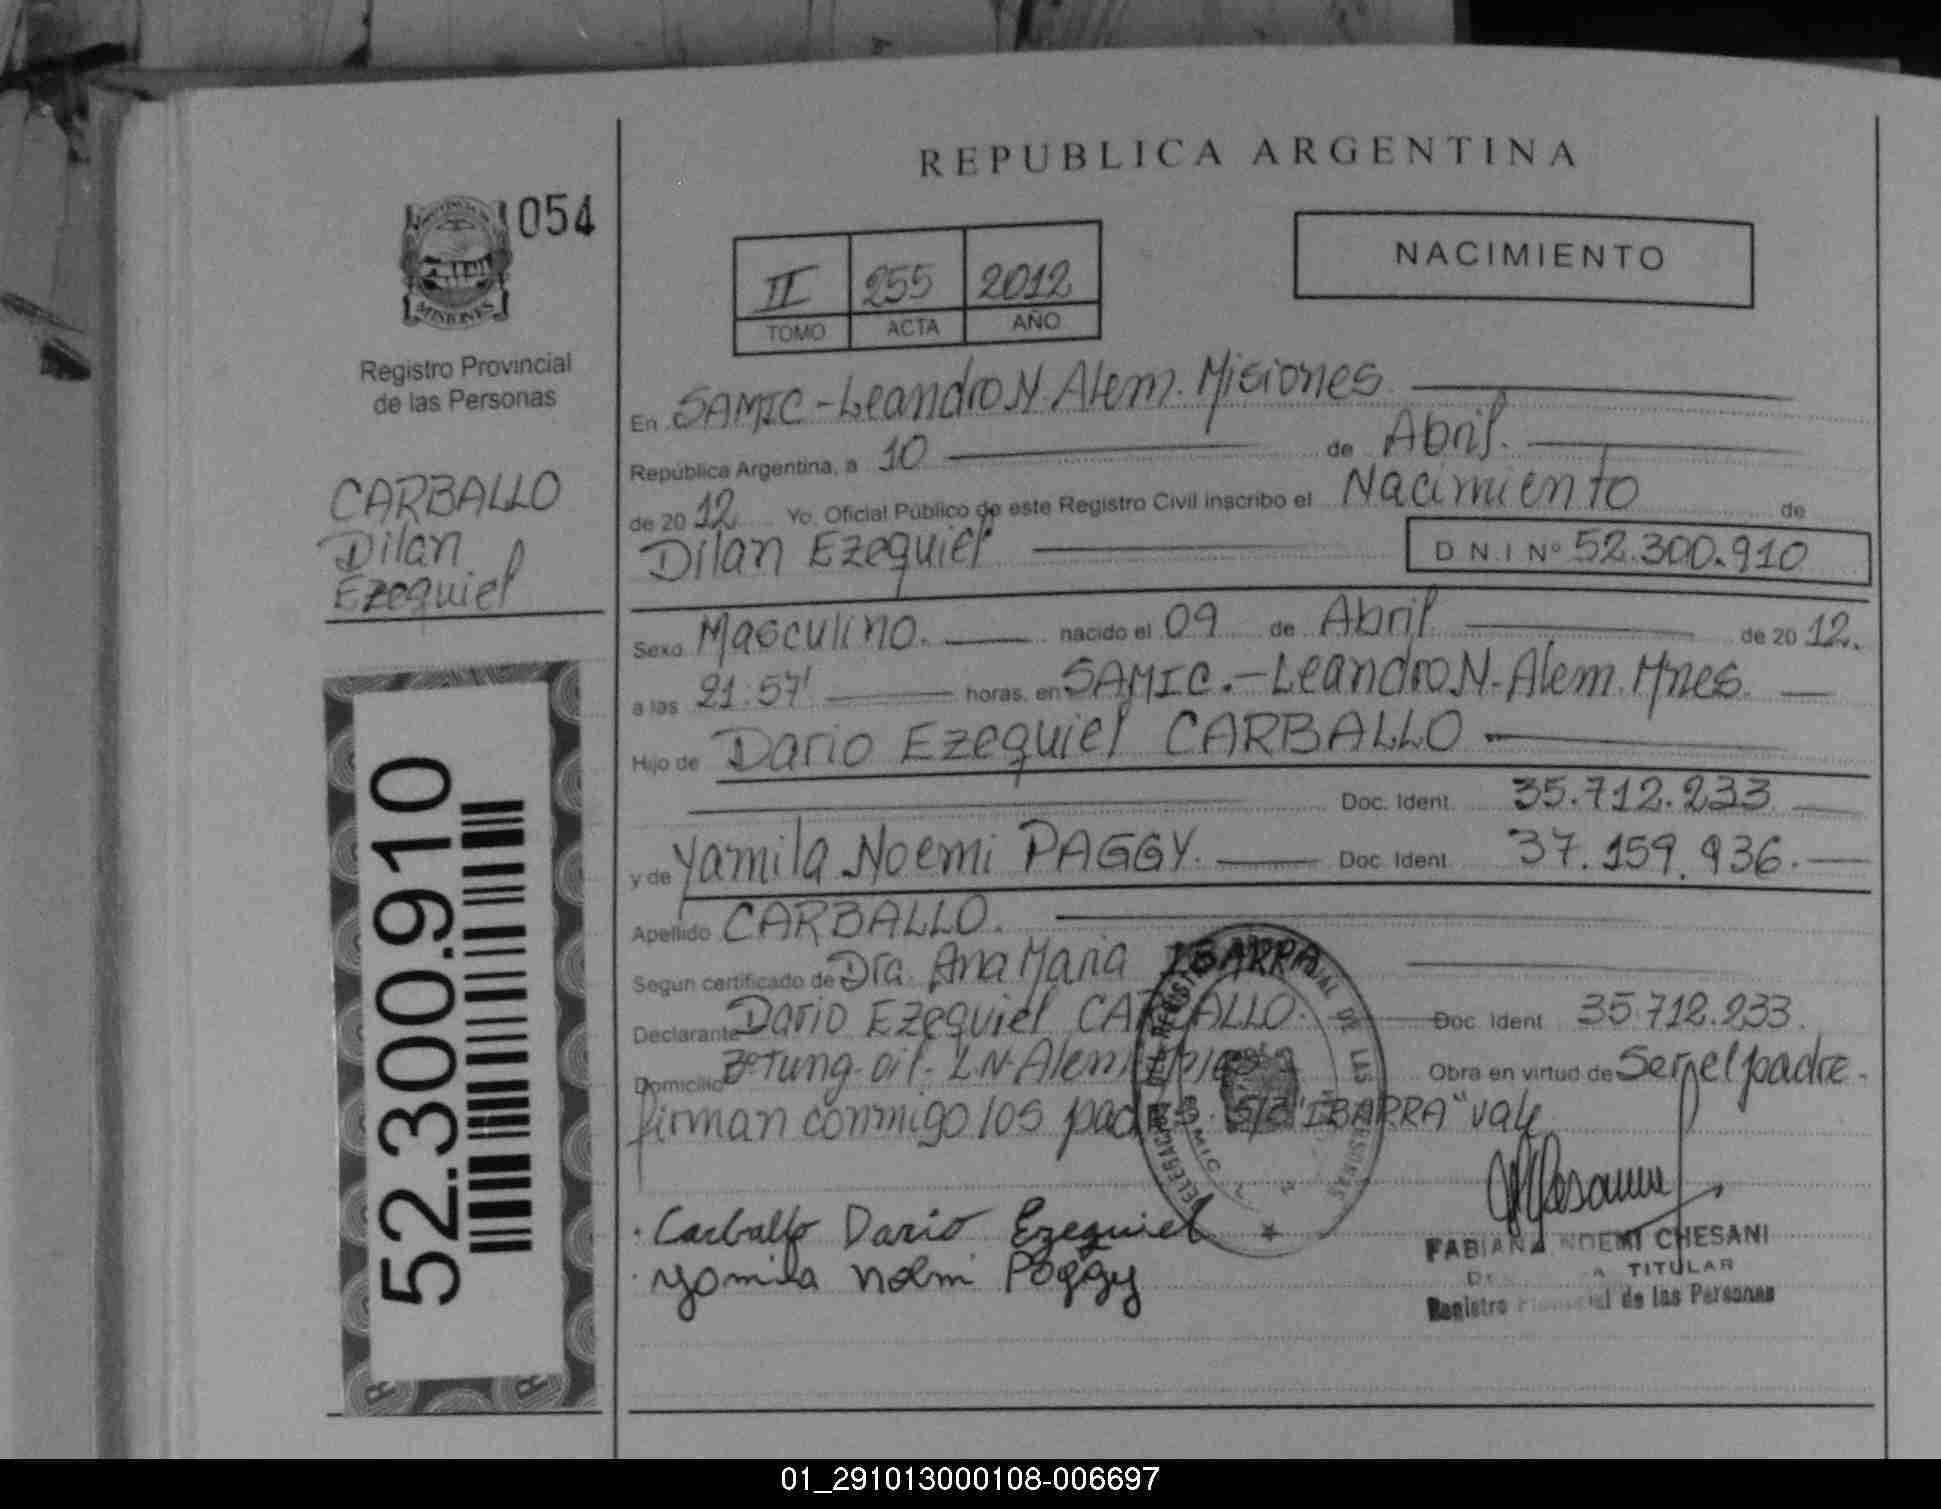 REPUBLICA ARGENTINA
054
MISIONES
Registro Provincial
de las Personas
II 255 2012
TOMO ACTA AÑO
NACIMIENTO
CARBALLO
Dilan
Ezequiel
52.300.910
En SAMIC - Leandro N. Alem. Misiones
República Argentina, a 10 de Abril.
de 2012 Yo, Oficial Público de este Registro Civil inscribo el Nacimiento de
Dilan Ezequiel D N.I Nº 52.300.910
Sexo Masculino. nacido el 09 de Abril de 2012.
a las 21:57' horas, en SAMIC.- Leandro N. Alem. Mnes.
Hijo de Dario Ezequiel CARBALLO
Doc. Ident. 35.712.233
y de Yamila Noemi PAGGY. Doc. Ident. 37.159.936.
Apellido CARBALLO.
Según certificado de Dra. Ana Maria IBARRA
Declarante Dario Ezequiel CARBALLO. Doc. Ident 35.712.233.
Domicilio Bº Tung-oil- L.N. Alem Obra en virtud de Ser el padre.
firman conmigo los S/R "IBARRA" vale
Carballo Dario Ezequiel
Yamila Noemi Poggy
FABIANA NOEMI CHESANI
TITULAR
Registro de las Personas
SAMIC
01_291013000108-006697